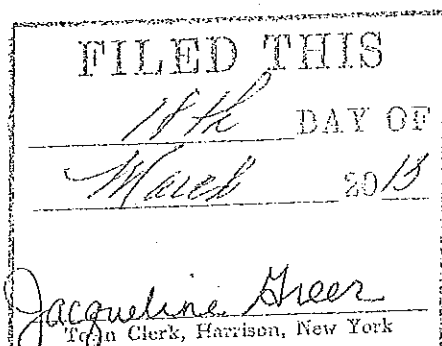 FILED THIS
18th DAY OF
March 20
Jacqueline Greer
Town Clerk, Harrison, New York